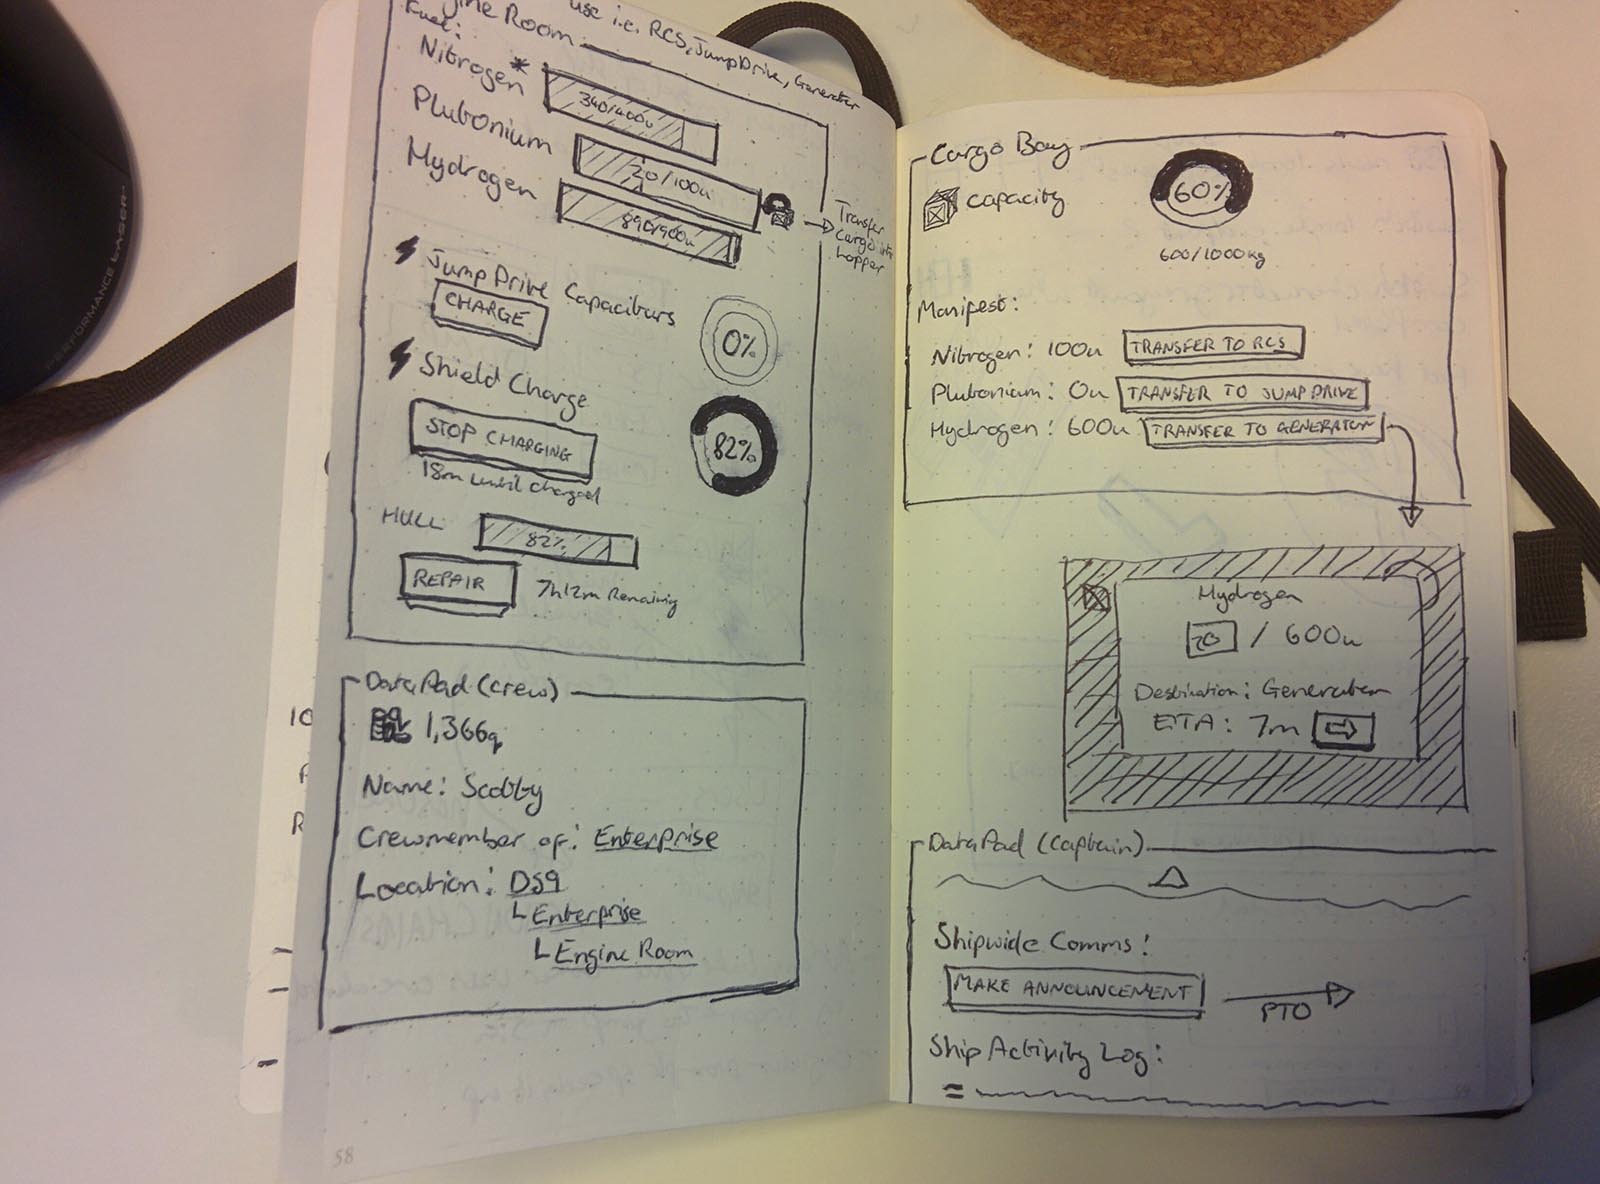 use i.e. RCS, Jump Drive, Generator
Engine Room
Fuel:
Nitrogen *
340/400u
Plutonium
20/100u
Hydrogen
890/900u
Transfer
Cargo into
hopper
Jump Drive Capacitors
CHARGE
0%
Shield Charge
STOP CHARGING
82%
18m until charged
HULL
82%
REPAIR
7h12m Remaining
DataPad (crew)
1,366q
Name: Scotty
Crewmember of: Enterprise
Location: DS9
Enterprise
Engine Room
58
Cargo Bay
Capacity
60%
600/1000kg
Manifest:
Nitrogen: 100u TRANSFER TO RCS
Plutonium: 0u TRANSFER TO JUMP DRIVE
Hydrogen: 600u TRANSFER TO GENERATOR
Hydrogen
20 / 600u
Destination: Generator
ETA: 7m
DataPad (Captain)
Shipwide Comms:
MAKE ANNOUNCEMENT
PTO
Ship Activity Log:
59
PERFORMANCE LASER